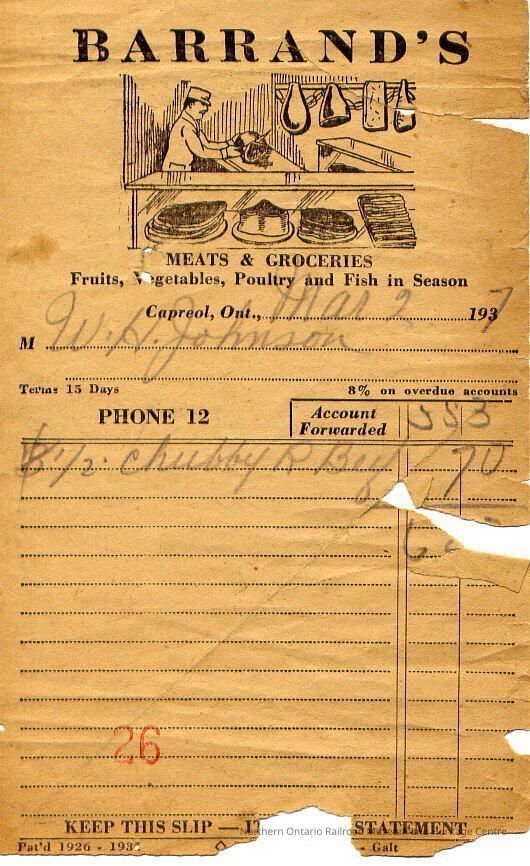 BARRAND'S
MEATS & GROCERIES
Fruits, Vegetables, Poultry and Fish in Season
Capreol, Ont., Mar 2 1937
M W. H. Johnson
Terms 15 Days 8% on overdue accounts
PHONE 12 Account Forwarded 553
1/2 Chubby R 70
26
KEEP THIS SLIP — STATEMENT
Northern Ontario Railroad Centre
Pat'd 1926 - 193 - Galt